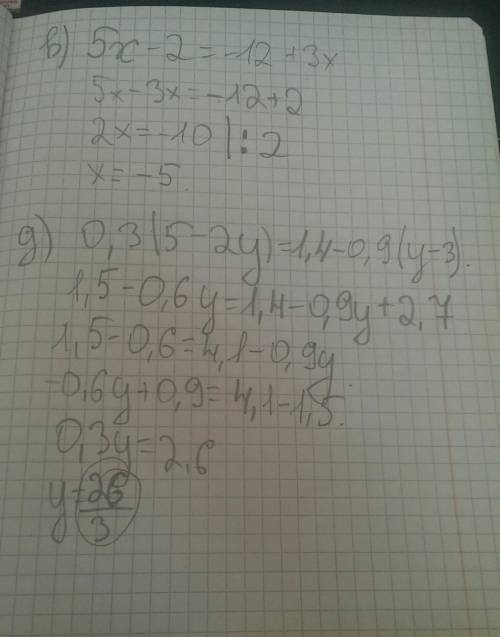 в) 5x - 2 = -12 + 3x
5x - 3x = -12 + 2
2x = -10 | : 2
x = -5.
g) 0,3(5 - 2y) = 1,4 - 0,9(y - 3).
1,5 - 0,6y = 1,4 - 0,9y + 2,7
1,5 - 0,6 = 4,1 - 0,9y.
-0,6y + 0,9 = 4,1 - 1,5.
0,3y = 2,6
y = 26/3